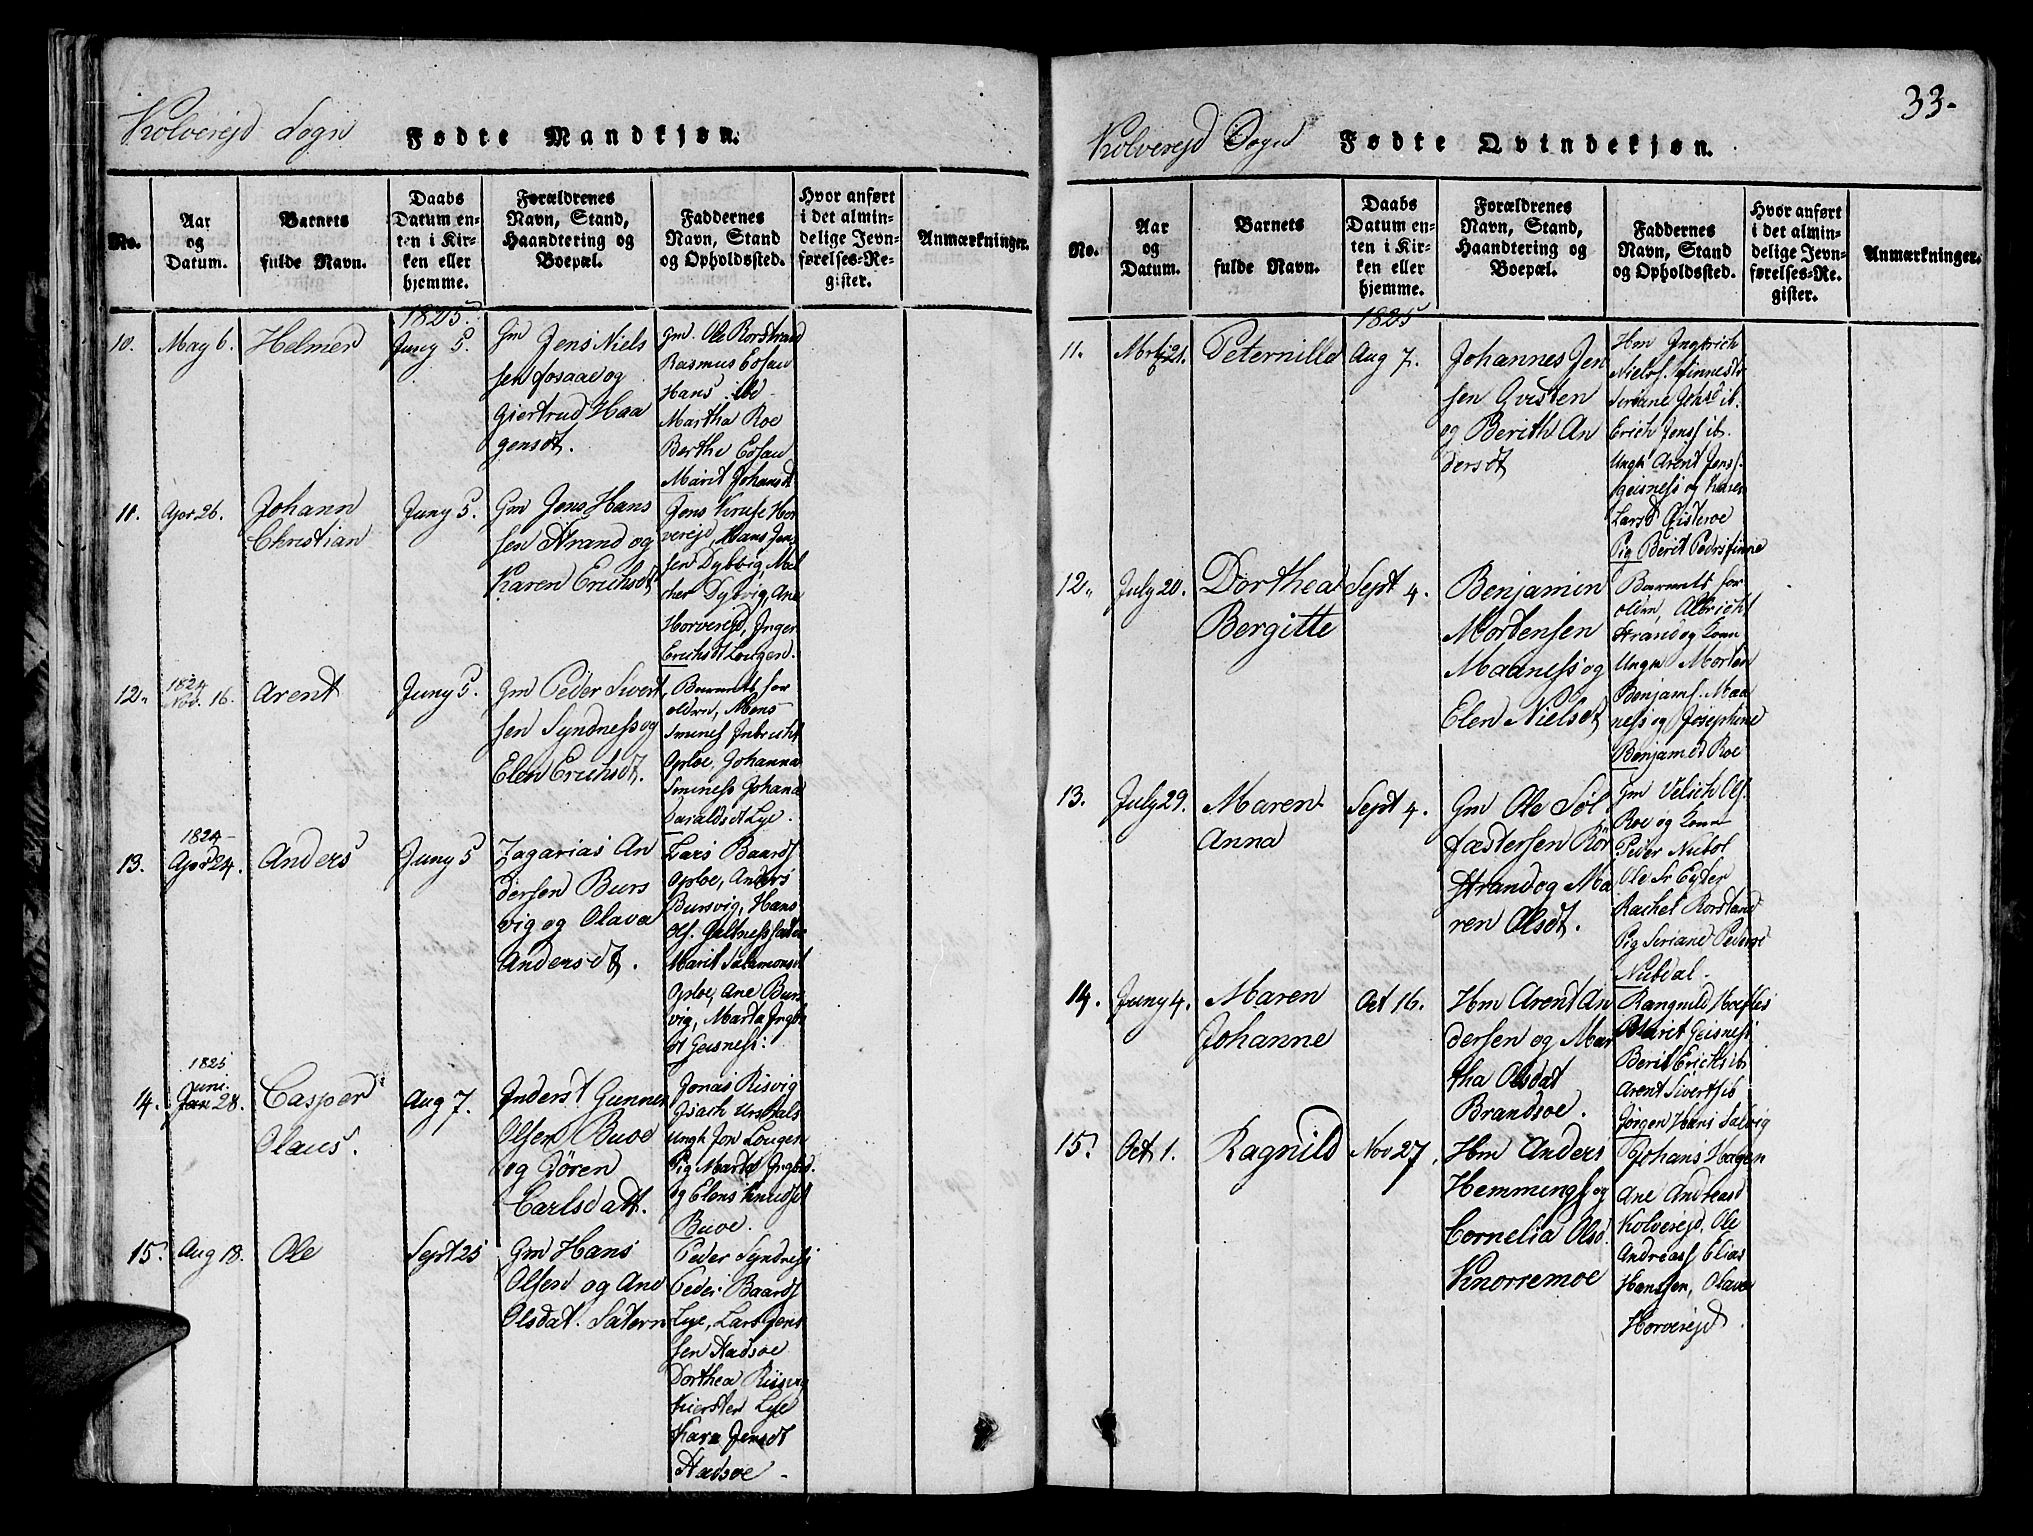 33.
Kolverejd Sogn Fødte Mandkjøn.
No.
Aar
og
Datum.
Barnets
fulde Navn.
Daabs
Datum en-
ten i Kir-
ken eller
hjemme.
Forældrenes
Navn, Stand,
Haandtering og
Boepæl.
Faddernes
Navn, Stand
og Opholdssted.
Hvor anført
i det almin-
delige Jevn-
førelses-Re-
gister.
Anmærkninger.
1825
10. May 6. Helmer Juny 5.
Gm Jens Niels
sen Fosaae og
Giertrud Haa
gensdt.
Gm. Ole Rorstrand
Rasmus Eosau
Hans ibd
Martha Roe
Berthe Eosau
Marit Johansdt
11. Apr 26. Johann
Christian
Juny 5.
Gm Jens Hans
sen Strand og
Karen Erichsdt
Jens Kruse Hor
verejd, Hans Jens
sen Dybvig, Mel
cher Dybvig, Ane
Horverejd, Inger
Erichsdt Lougen.
12. 1824
Nov. 16. Arent Juny 5.
Gm Peder Sivert
sen Syndness og
Elen Erichsdt.
Barnets for
oldrn, Mons
Smines Inbricht
Oploe, Johanna
Sminess Johana
Daraldsdt Lye.
13. 1824
Apr 24. Anders Juny 5
Zagarias An
dersen Burs
vig og Olava
Andersdt.
Lars Baards
Oploe, Anders
Bursvig, Hans
Ols. Geltness
Marit Salamonsdt
Oploe, Ane Burs
vig, Marta Ingeb
dt Geisness.
14. 1825
Juni
Jan 28. Casper
Olaus.
Aug 7.
Inderst Gunner
Olsen Buoe
og Jören
Carlsdatt.
Jonas Risvig
Isach Urstals
Ungk Jon Lougen
Pig Marta Ingbd.
og Elens Knudsdt
Buoe.
15. Aug 18. Ole Sept 25
Gm Hans
Olsen og Ane
Olsdat. Satern
Peder Syndness
Peder Baards
Lye, Lars Jens
sen Stadsoe
Dorthea Risvig
Kiersten Lye
Kara Jensdt
Stadsoe
Kolverejd Sogn Fødte Qvindekjøn.
No.
Aar
og
Datum.
Barnets
fulde Navn.
Daabs
Datum en-
ten i Kir-
ken eller
hjemme.
Forældrenes
Navn, Stand,
Haandtering og
Boepæl.
Faddernes
Navn, Stand
og Opholdssted.
Hvor anført
i det almin-
delige Jevn-
førelses-Re-
gister.
Anmærkninger.
1825
11. 21. Peternille Aug 7.
Johannes Jen
sen Qvisten
og Berith An
dersdt
Hm Ingbrich
Niels. Finnestr
Seriane Johs ib.
Erich Jenss ib.
Ungk Arent Jens.
Geisness og Karen
Larsd Qisteroe
Pig Berit Pedrs finne
12. July 20. Dorthea
Bergitte
Sept 4.
Benjamin
Mortensen
Maaness og
Elen Nielsdt
Barnets for
oldrn, Albricht
Strand og Kone
Ungk Morten
Benjams. Maa
ness og Josephine
Benjamsd Roe
13. July 29. Maren
Anna
Sept 4.
Gm Ole Söl
fæstersen Rör
strand og Ma
ren Olsdt.
Gm Velich Ols.
Roe og Kone
Peder Nubdl
Ole Sr Eyder
Rachel Rorstand
Pig Seriane Pedersd
Nubdal.
14. Juny 4. Maren
Johanne
Oct 16.
Hm Arent An
dersen og Mar
tha Olsdat
Brandsoe.
Rangnild Hoefles
Marit Geisness
Berit Erichs ib
Arent Siverts ib
Jörgen Hans Salvig
15. Oct 1. Ragnild Nov 27.
Hm Anders
Hemmings og
Cornelia Olsd.
Knorremoe
Johans Hagen
Ane Andreasd
Kolverejd. Ole
Andreass Elias
Hanssen, Olava
Horverejd.